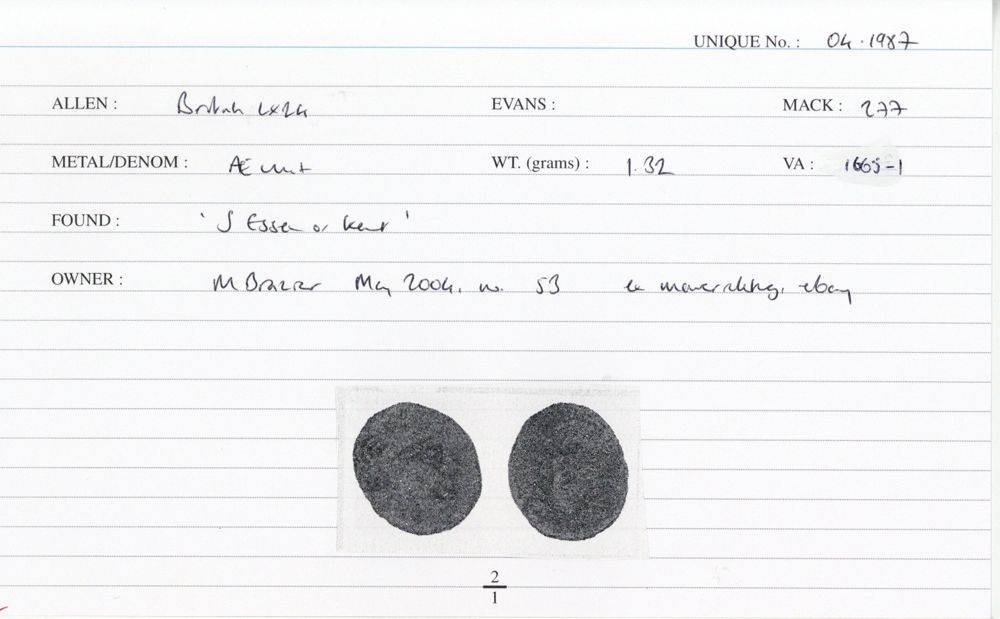 UNIQUE No. : 04.1987
ALLEN : British LX24 EVANS : MACK : 277
METAL/DENOM : Æ unit WT. (grams) : 1.32 VA : 1665-1
FOUND : 'S Essex or Kent'
OWNER : M Brazier May 2004, no. 53 ex ebay
2
1